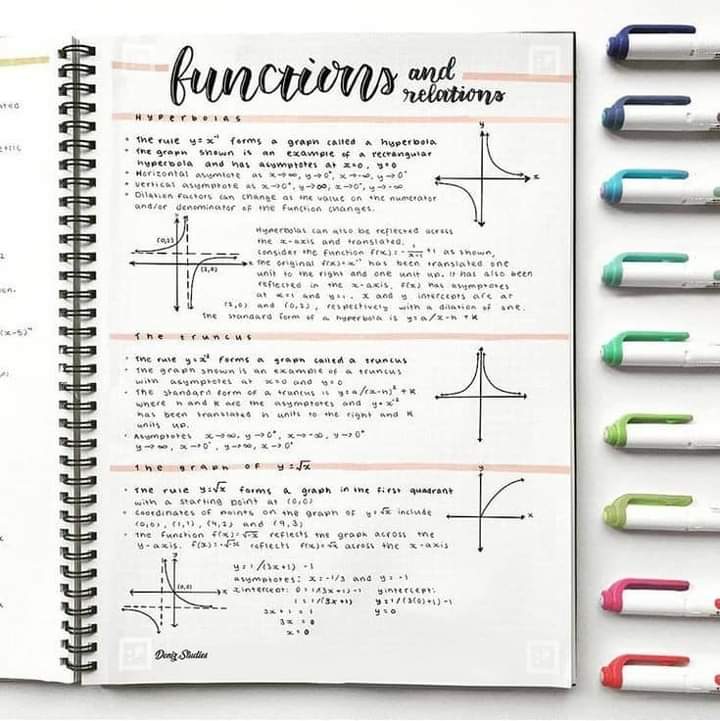 functions and relations
Hyperbolas
• The rule y=x⁻¹ forms a graph called a hyperbola
• The graph shown is an example of a rectangular
hyperbola and has asymptotes at x=0, y=0
• Horizontal asymtote as x→∞, y→0⁺, x→-∞, y→0⁻
• Vertical asymptote as x→0⁺, y→∞, x→0⁻, y→-∞
• Dilation factors can change as the value on the numerator
and/or denominator of the function changes.
y
x
y
(0,2)
(2,0)
x
Hyperbolas can also be reflected across
the x-axis and translated.
consider the function f(x)=-1/(x-1)+1 as shown,
the original f(x)=x⁻¹ has been translated one
unit to the right and one unit up. It has also been
reflected in the x-axis. f(x) has asymptotes
at x=1 and y=1. x and y intercepts are at
(2,0) and (0,2), respectively with a dilation of one.
The standard form of a hyperbola is y=a/x-h + k
The truncus
• The rule forms a graph called a truncus
• The graph shown is an example of a truncus
with asymptotes at x=0 and y=0
• The standard form of a truncus is y=a/(x-h)² + k
where h and k are the asymptotes and
has been translated h units to the right and k
units up.
• Asymptotes x→∞, y→0⁺, x→-∞, y→0⁺
y→∞, x→0⁺, y→∞, x→0⁻
The graph of y=√x
• The rule y=√x forms a graph in the first quadrant
with a starting point at (0,0)
• Coordinates of points on the graph of y=√x include
(0,0), (1,1), (4,2) and (9,3)
• The function f(x)=√-x reflects the graph across the
y-axis. f(x)=-√x reflects f(x)=√x across the x-axis
y
x
y
(0,0)
x
y=1/(3x+1) -1
asymptotes: x=-1/3 and y=-1
xintercept: 0=1/3x+1)-1 yintercept:
1=1/(3x+1) y=1/(3(0)+1)-1
3x+1=1 y=0
3x=0
x=0
Deniz Studies
(x-5)